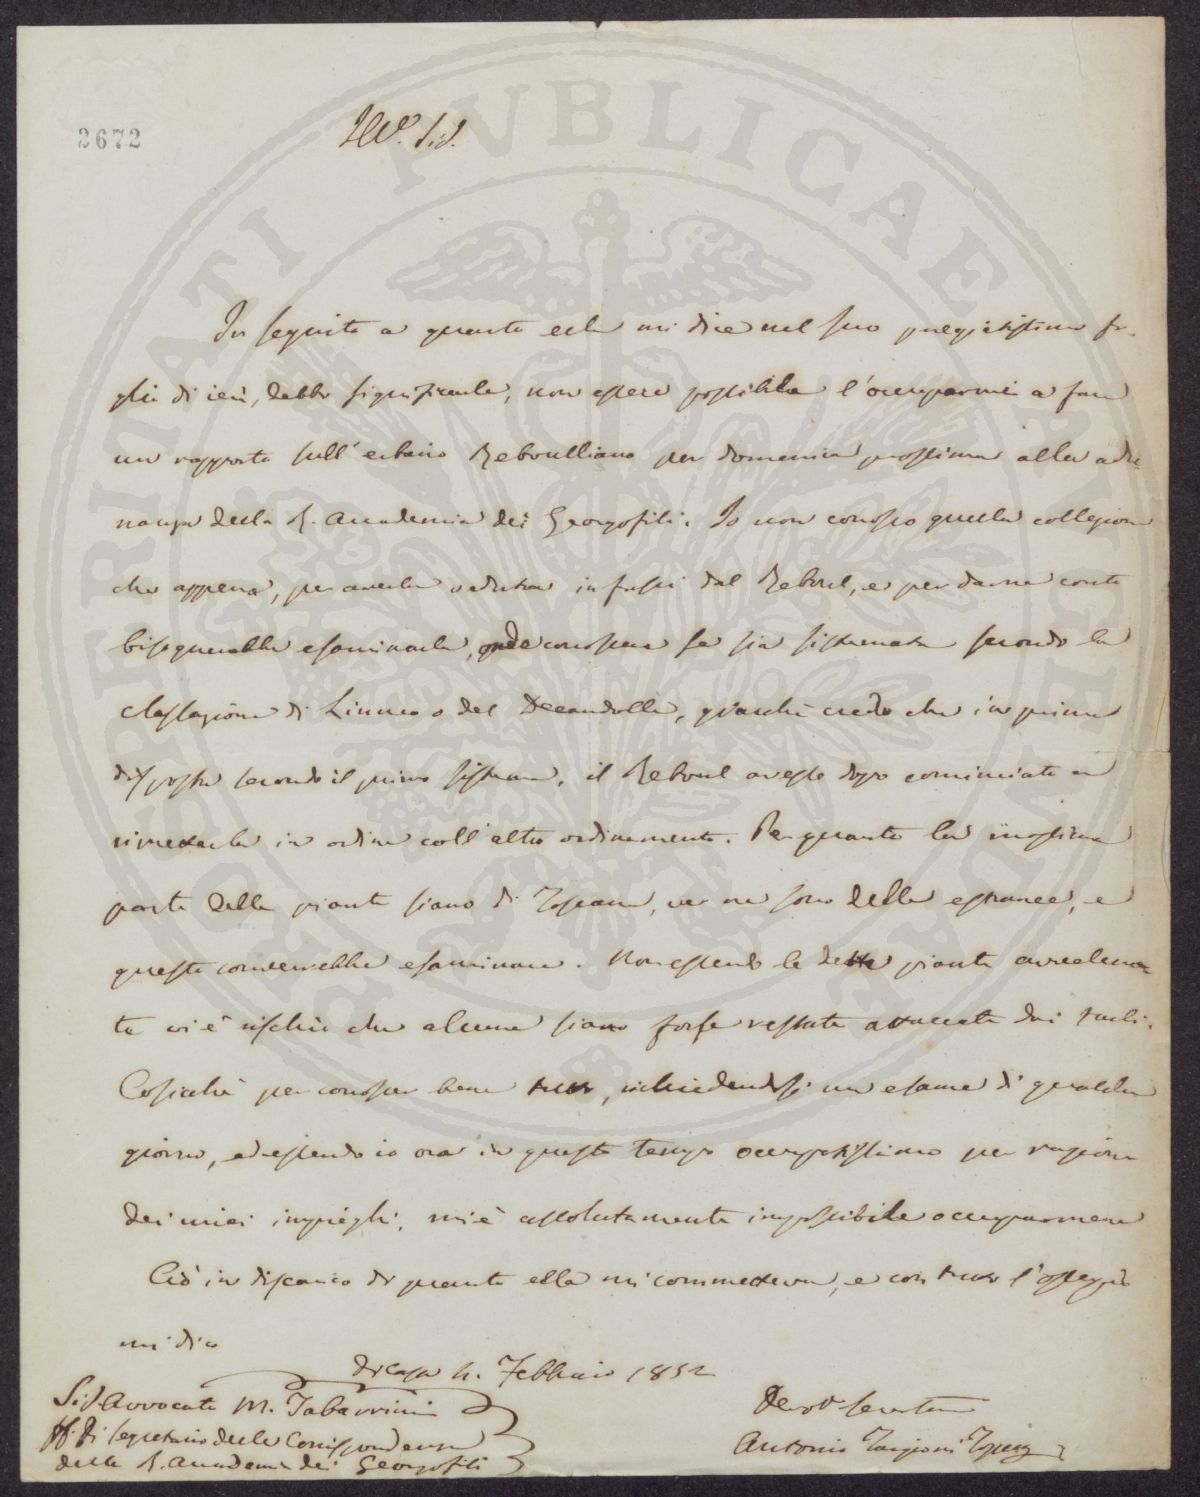 2672
Ill.º Sig.
PROSPERITATI PUBLICAE AUGENDAE
In seguito a quanto ella mi dice nel suo pregiatissimo fo-
glio di ieri, debbo significarle, non essere possibile l'occuparmi a fare
un rapporto sull'erbario Reboulliano per domenica prossima alla adu-
nanza della R. Accademia dei Georgofili. Io non conosco quella collezione
che appena, per averla veduta in fasci dal Reboul, e per darne conto
bisognerebbe esaminarla, onde conoscere se sia sistemata secondo la
classazione di Linneo o del Decandolle, giacchè credo che in prima
disposta secondo il primo sistema, il Reboul avesse dopo cominciato a
rimetterla in ordine coll'altro ordinamento. Per quanto la massima
parte delle piante siano di Toscana, ve ne sono delle estranee, e
queste converrebbe esaminare. Non essendo le dette piante avvelena-
te vi è rischio che alcune siano forse restate attaccate dai tarli.
Cosicchè per conoscer bene tutto, richiedendosi un esame di qualche
giorno, ed essendo io ora in questo tempo occupatissimo per ragione
dei miei impieghi, mi è assolutamente impossibile occuparmene
Ciò in discarico di quanto ella mi commetteva, e con tutto l'ossequio
mi dico
Di casa 4. Febbraio 1852
Sig. Avvocato M. Tabarrini
ff. di Segretario delle Corrispondenze
della R. Accademia dei Georgofili
Devot. Servitore
Antonio Targioni Tozzetti